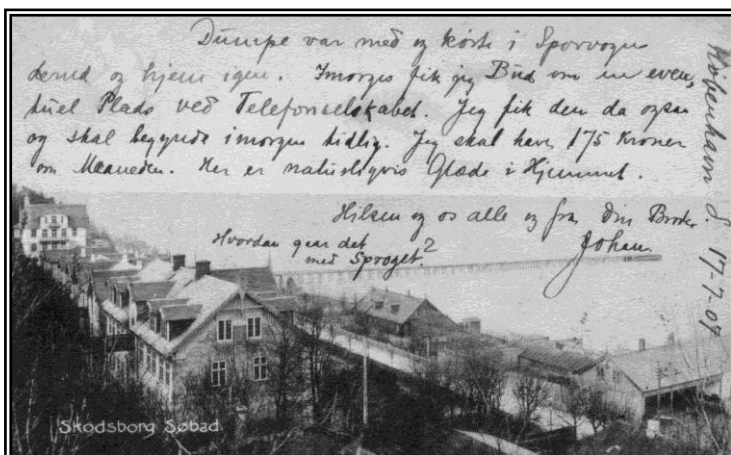 Dumpe var med og kørte i Sporvogn
derud og hjem igen. Imorges fik jeg Bud om en even,
tuel Plads ved Telefonselskabet. Jeg fik den da ogsaa
og skal begynde imorgen tidlig. Jeg skal have 175 Kroner
om Maaneden. Her er naturligvis Glæde i Hjemmet.
Hilsen og os alle og fra Din Broder
Johan.
Hvordan gaar det
med Sproget?
København d. 17-7-07
Skodsborg Søbad